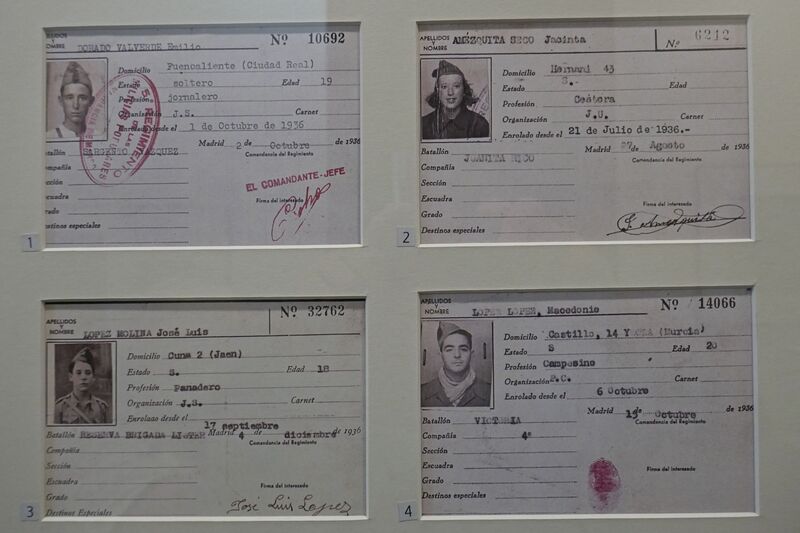 APELLIDOS
Y
NOMBRE
DORADO VALVERDE Emilio
Nº 10692
Domicilio Fuencaliente (Ciudad Real)
Estado soltero Edad 19
Profesión jornalero
Organización J.S. Carnet
Enrolado desde el 1 de Octubre de 1936
Batallón SARGENTO VAZQUEZ Madrid 2 de Octubre
Compañía Comandancia del Regimiento
Sección
Escuadra
Grado Firma del interesado
Destinos especiales
5º REGIMIENTO
MILICIAS POPULARES
EL COMANDANTE-JEFE
1
APELLIDOS
Y
NOMBRE
AMÉZQUITA SECO Jacinta
Nº 6212
Domicilio Hernani 43
Estado S. Edad
Profesión Cestora
Organización J.S. Carnet
Enrolado desde el 21 de Julio de 1936.-
Batallón JUANITA RICO Madrid 27 de Agosto de 1936
Compañía Comandancia del Regimiento
Sección
Escuadra
Grado Firma del interesado
Destinos especiales J. Amezquita
2
APELLIDOS
Y
NOMBRE
LOPEZ MOLINA José Luis
Nº 32762
Domicilio Cuna 2 (Jaen)
Estado S. Edad 18
Profesión Panadero
Organización J.S. Carnet
Enrolado desde el 17 septiembre
Batallón RESERVA BRIGADA LISTER Madrid 4 de diciembre de 1936
Compañía Comandancia del Regimiento
Sección
Escuadra Firma del interesado
Grado
Destinos Especiales José Luis Lopez
3
APELLIDOS
Y
NOMBRE
LOPEZ LOPEZ, Macedonio
Nº 14066
Domicilio Castillo, 14 (Murcia)
Estado S Edad 20
Profesión Campesino
Organización P.C. Carnet
Enrolado desde el 6 Octubre
Batallón VICTORIA Madrid 13 de Octubre de 1936
Compañía 4ª Comandancia del Regimiento
Sección
Escuadra Firma del interesado
Grado
Destinos especiales
4